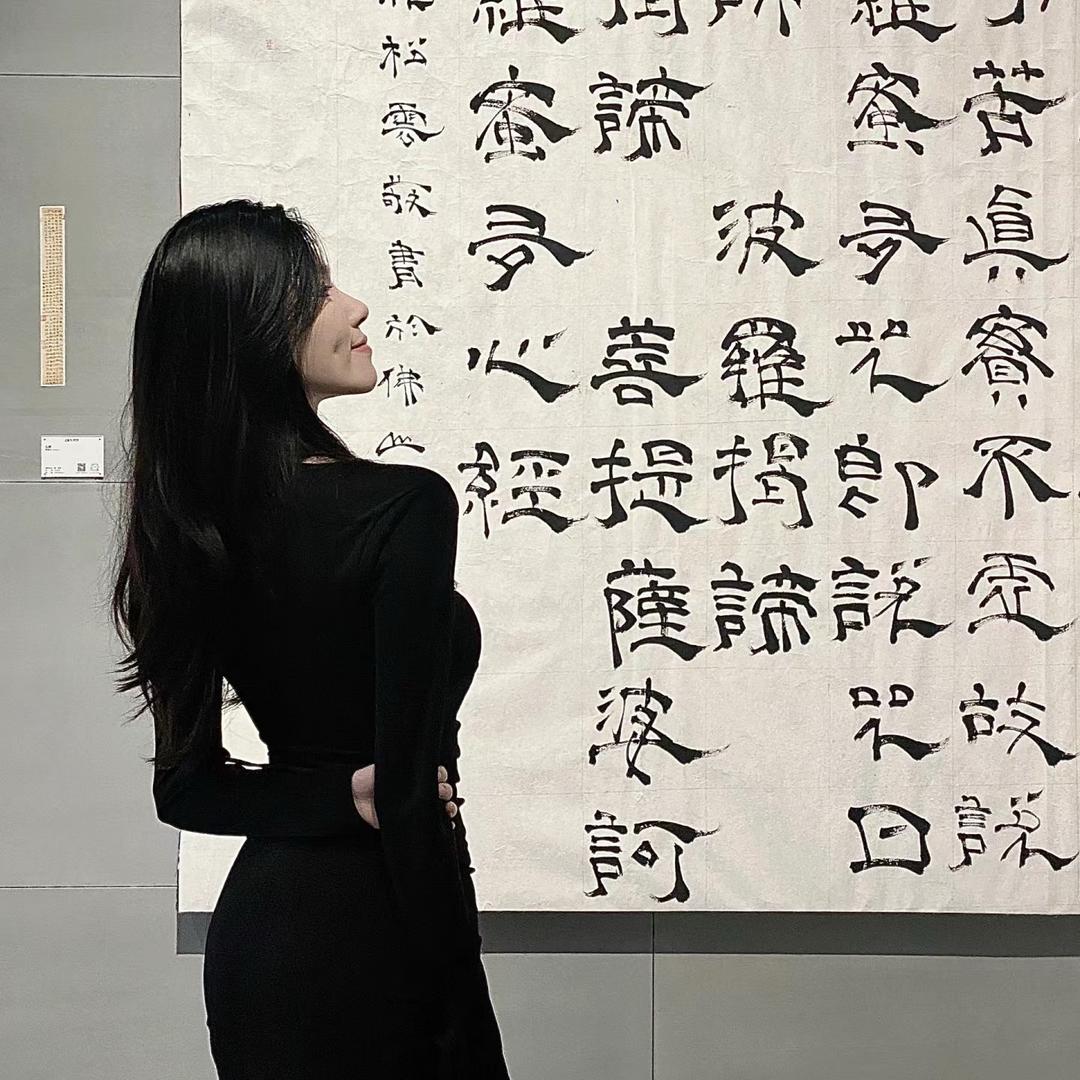 苦眞實不虛故說
羅蜜多咒即說咒曰
波羅揭諦
揭諦菩提薩婆訶
羅蜜多心經
松雲敬書於佛山